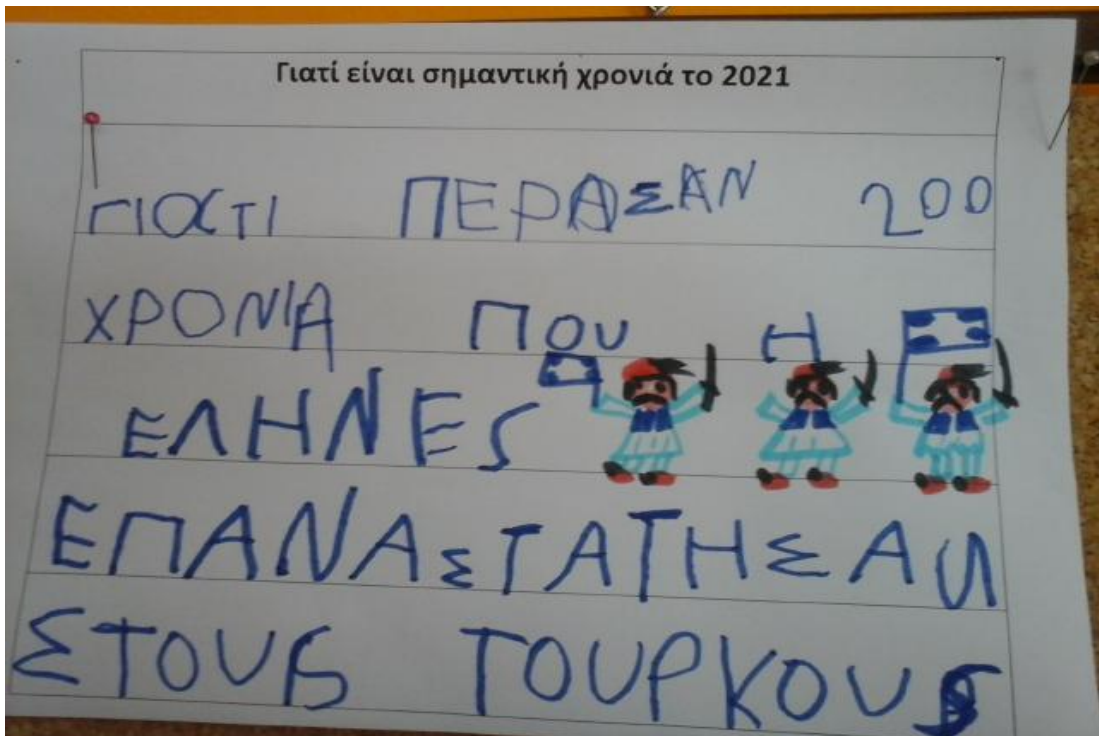 Γιατί είναι σημαντική χρονιά το 2021
ΓΙΑΤΙ ΠΕΡΑΣΑΝ 200
ΧΡΟΝΙΑ ΠΟυ Η
ΕΛΗΝΕς
ΕΠΑΝΑΣΤΑΤΗΣΑΝ
ΣΤΟυς ΤΟυΡΚΟυς